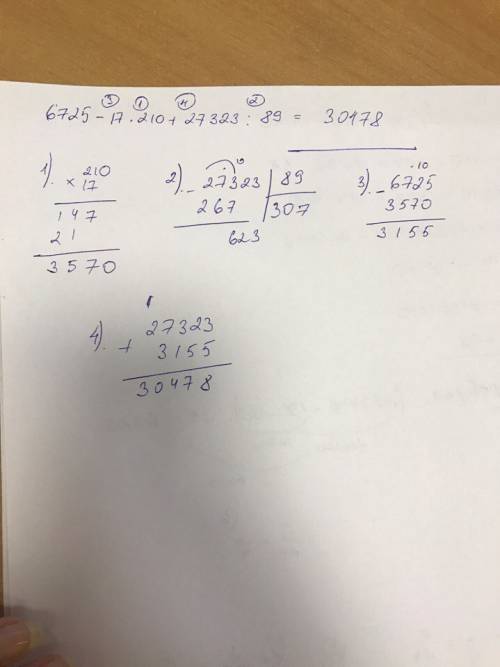 ③ ① ④ ②
6725 - 17 · 210 + 27323 : 89 = 30478
1). × 210
17
147
21
3570
2). - 27323 | 89
267 | 307
623
10
3). - 6725
3570
3155
4). + 27323
3155
30478